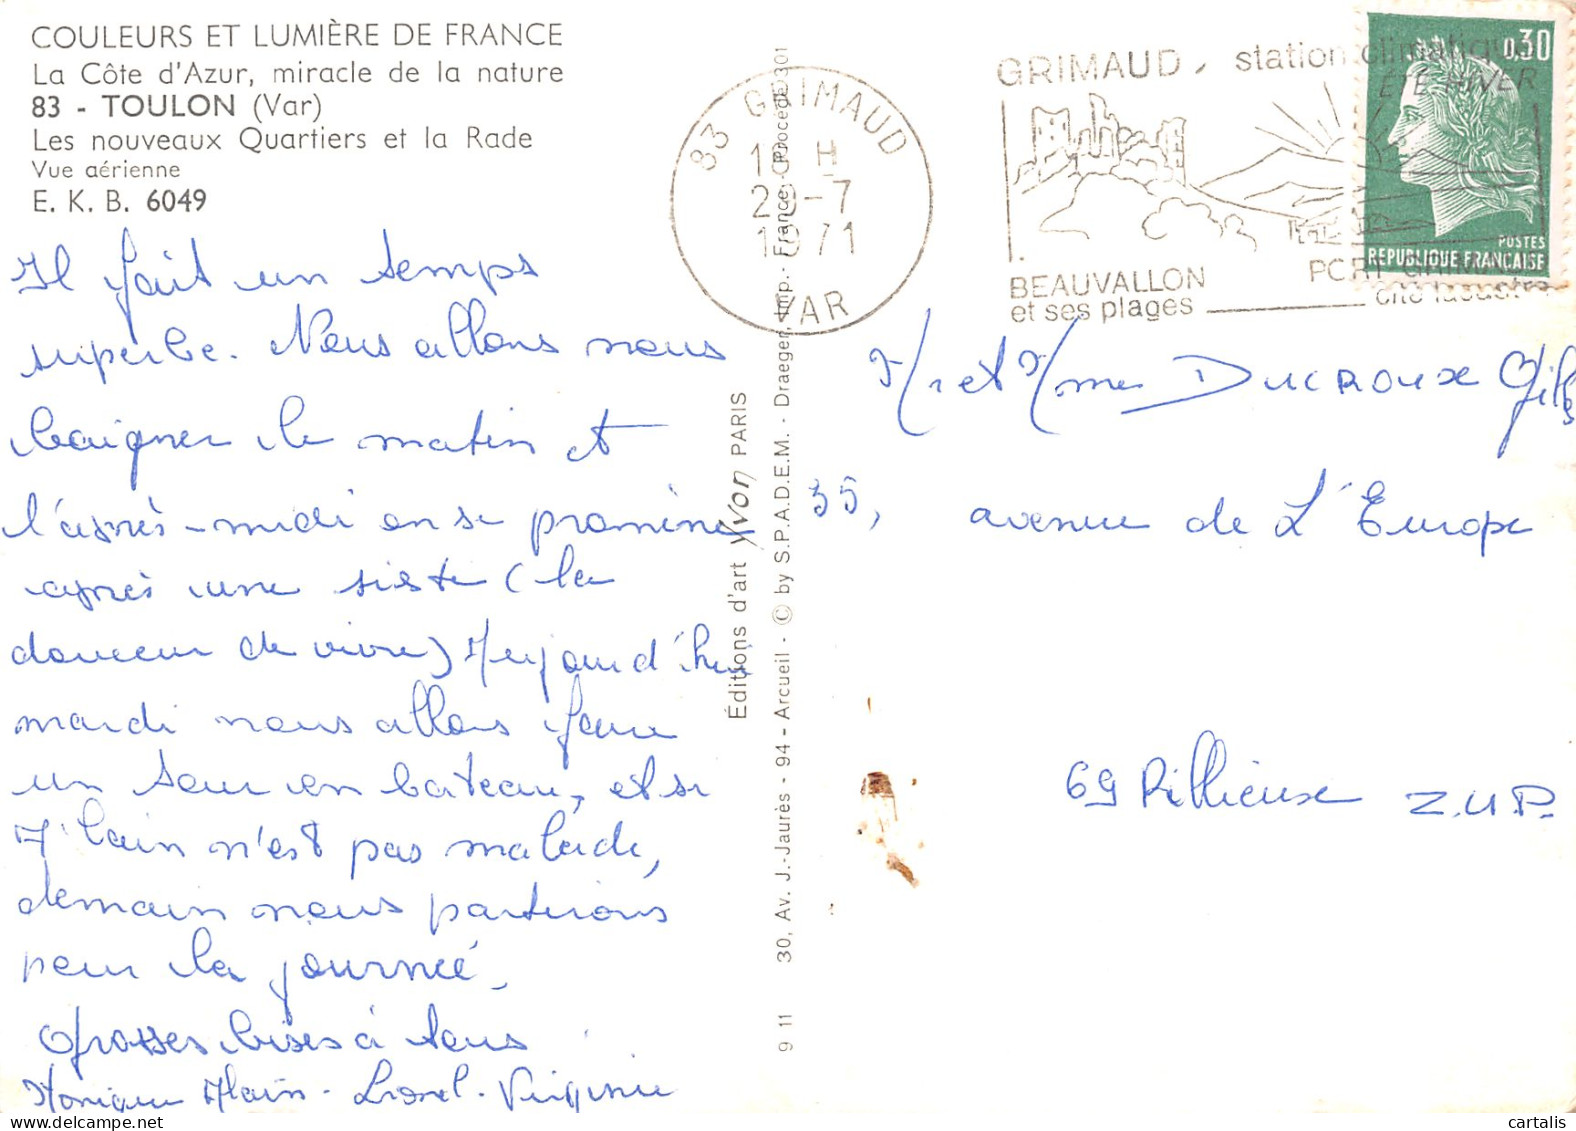 COULEURS ET LUMIÈRE DE FRANCE
La Côte d'Azur, miracle de la nature
83 - TOULON (Var)
Les nouveaux Quartiers et la Rade
Vue aérienne
E. K. B. 6049
Il fait un temps
superbe. Nous allons nous
baigner le matin et
l'après-midi on se promène
après une sieste (la
douceur de vivre) Aujourd'hui
mardi nous allons faire
un tour en bateau, et si
Alain n'est pas malade,
demain nous partirons
pour la journée.
Grosses bises à tous
Monique Alain - Lionel - Virginie
Éditions d'art Yvon PARIS
30, Av. J.-Jaurès - 94 - Arcueil - © by S.P.A.D.E.M. - Draeger, Imp. - France - Procédé 301
9 11
83 GRIMAUD
H
-7
1971
VAR
GRIMAUD, station climatique
ÉTÉ-HIVER
BEAUVALLON
et ses plages
PORT GRIMAUD
cité lacustre
0,30
POSTES
REPUBLIQUE FRANÇAISE
Mr et Mme Ducroux Gilb
35, avenue de L'Europe
69 Rillieux Z.U.P.
cartalis